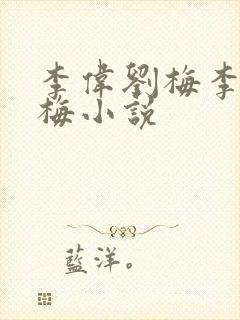 李偉劉梅李
梅小説
藍洋。